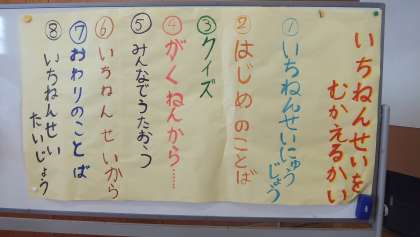 いちねんせいを
むかえるかい
①いちねんせいにゅう
じょう
②はじめのことば
③クイズ
④がくねんから……
⑤みんなでうたおう
⑥いちねんせいから
⑦おわりのことば
⑧いちねんせい
たいじょう